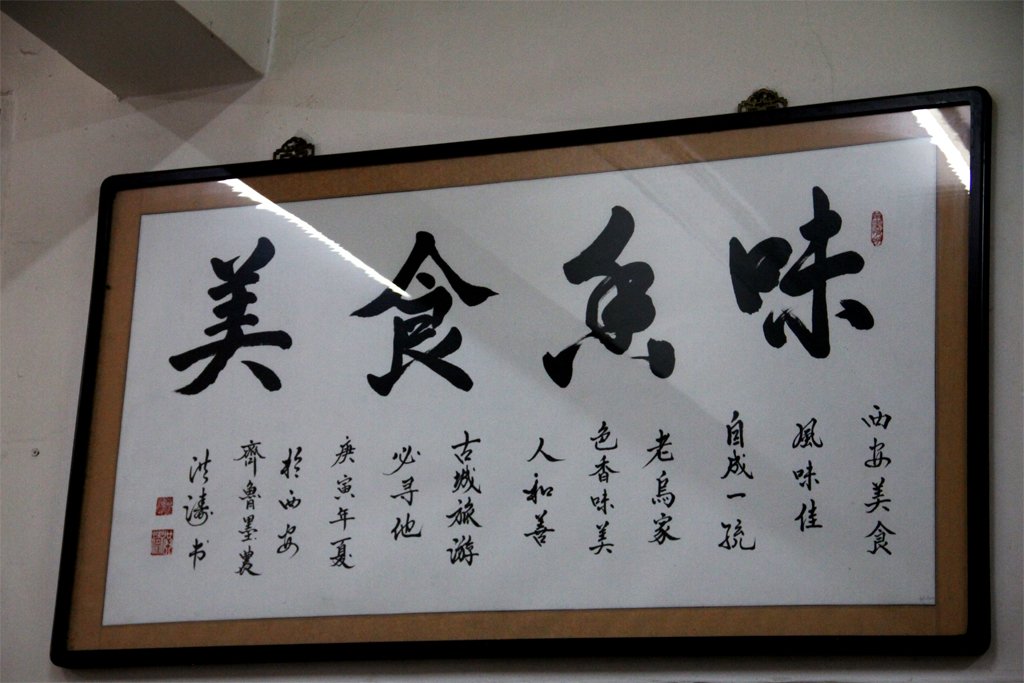 味香食美
西安美食
風味佳
自成一統
老烏家
色香味美
人和善
古城旅游
必寻他
庚寅年夏
於西安
齊魯墨農
洪濤书